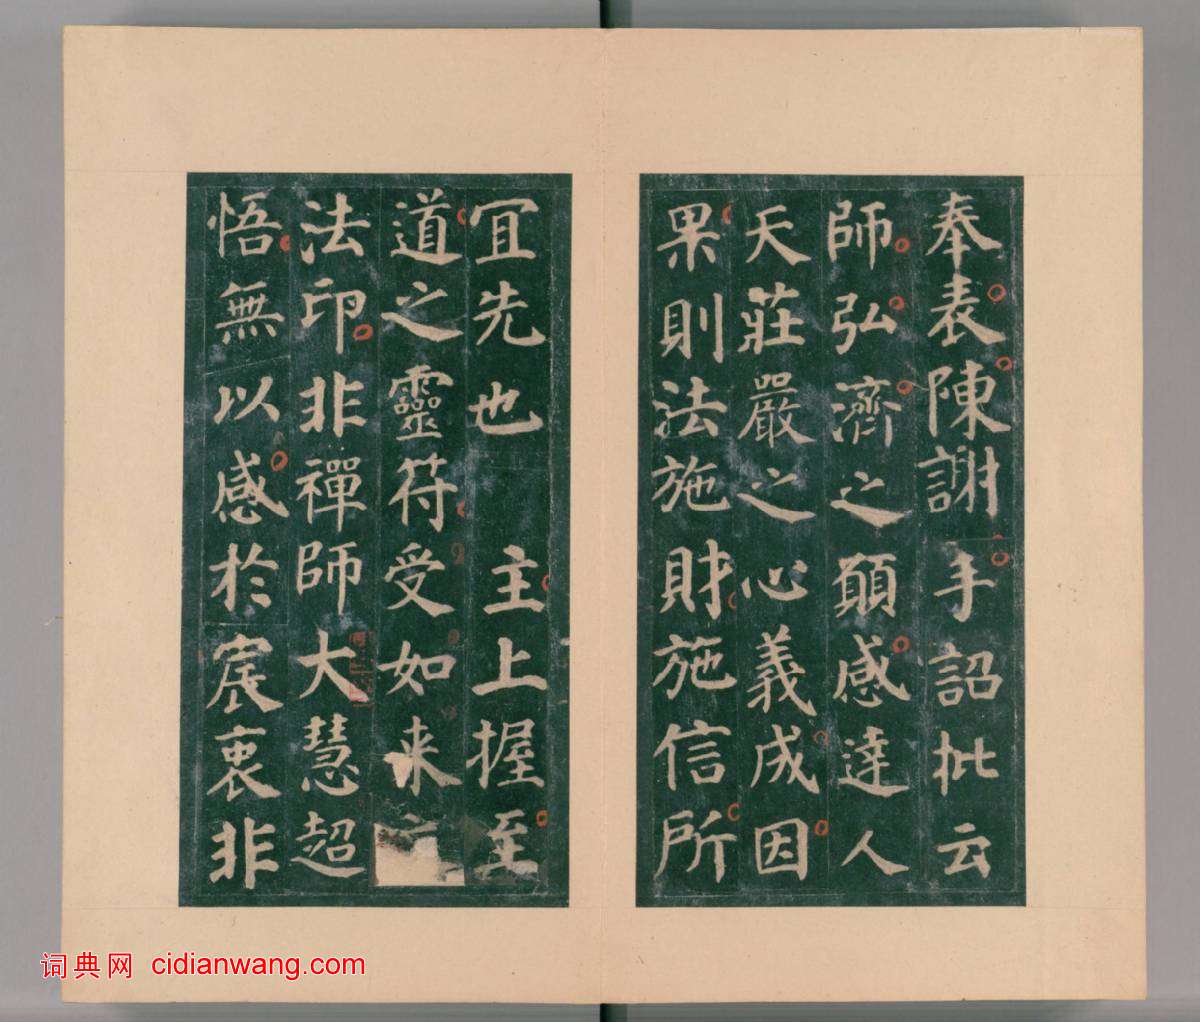 奉表陳謝手詔批云
師弘濟之願感達人
天莊嚴之心義成因
果則法施財施信所
宜先也 主上握至
道之靈符受如来
法印非禪師大慧超
悟無以感於宸衷非
词典网 cidianwang.com